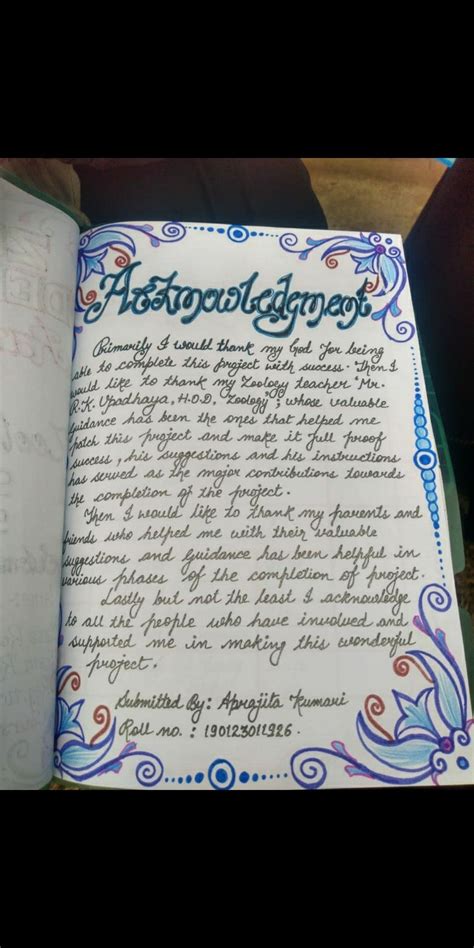 Acknowledgment
Primarily I would thank my God for being
able to complete this project with success. Then I
would like to thank my Zoology teacher "Mr.
R.K. Upadhaya, H.O.D, Zoology"; whose valuable
guidance has been the ones that helped me
patch this project and make it full proof
success, his suggestions and his instructions
has served as the major contributions towards
the completion of the project.
Then I would like to thank my parents and
friends who helped me with their valuable
suggestions and guidance has been helpful in
various phases of the completion of project.
Lastly but not the least I acknowledge
to all the people who have involved and
supported me in making this wonderful
project.
Submitted By: Aprajita Kumari
Roll no. : 190123011926.